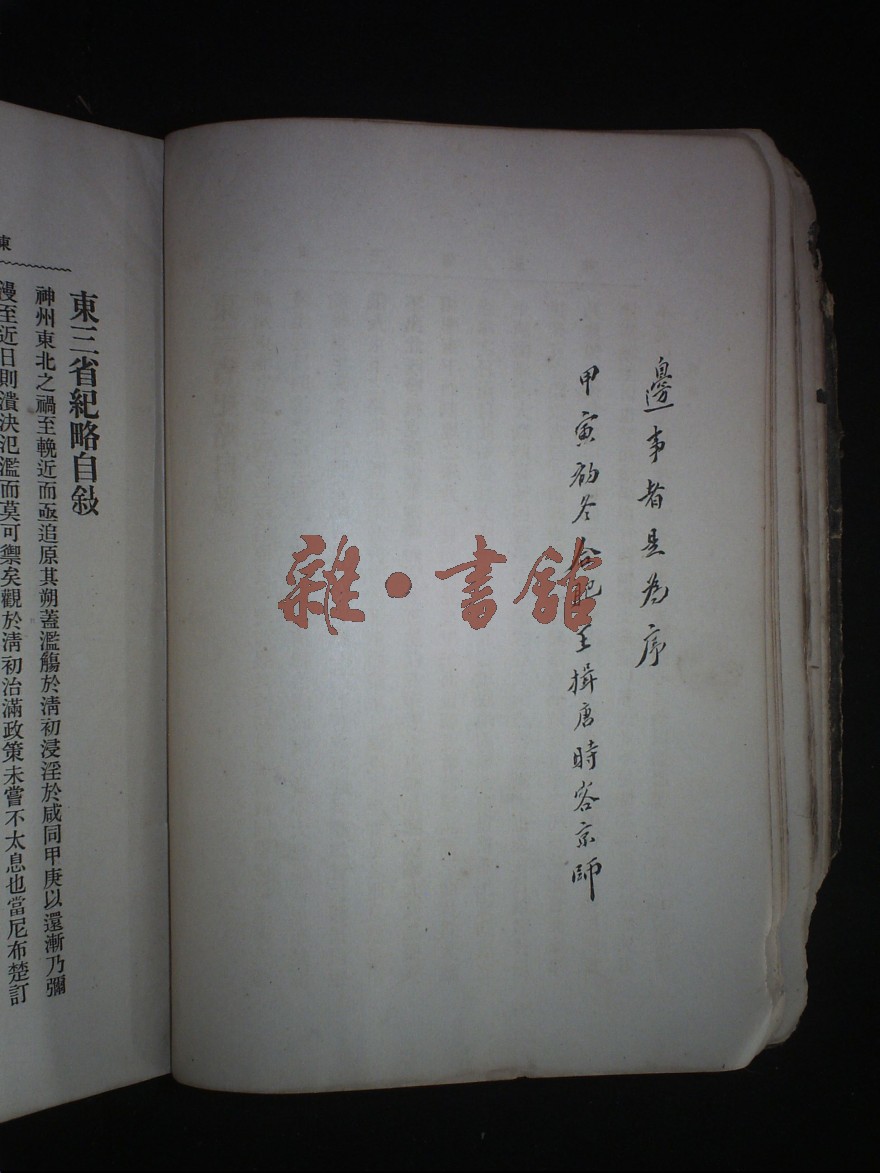 邊事者是為序
甲寅初冬合肥王揖唐時客京師
東
東三省紀略自敍
神州東北之禍至輓近而亟追原其朔蓋濫觴於淸初浸淫於咸同甲庚以還漸乃彌
漫至近日則潰決氾濫而莫可禦矣觀於淸初治滿政策未嘗不太息也當尼布楚訂
雜·書館